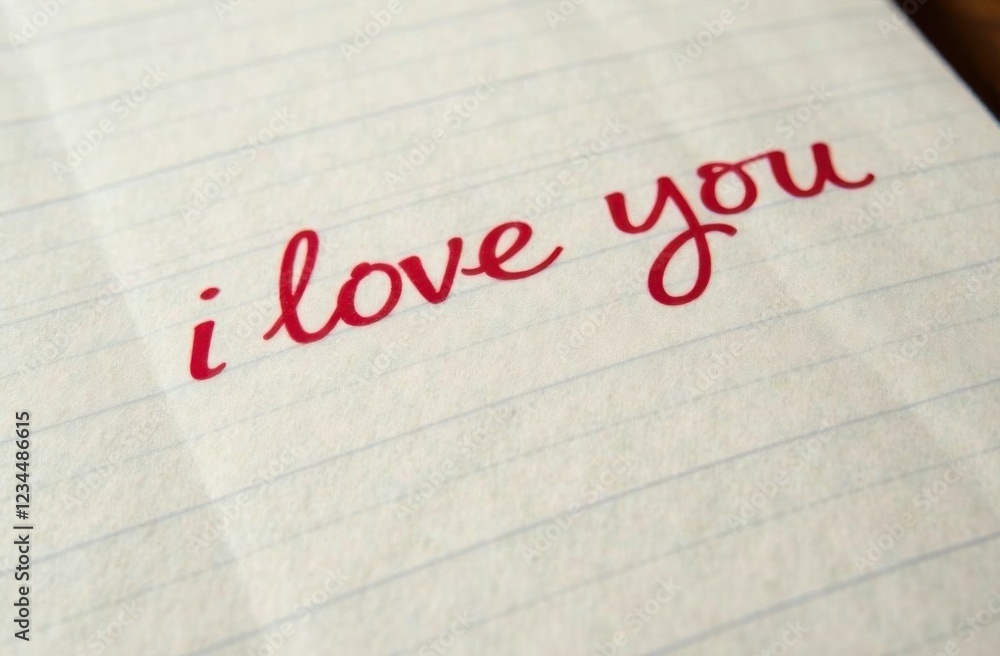 i love you
Adobe Stock | #1234486615